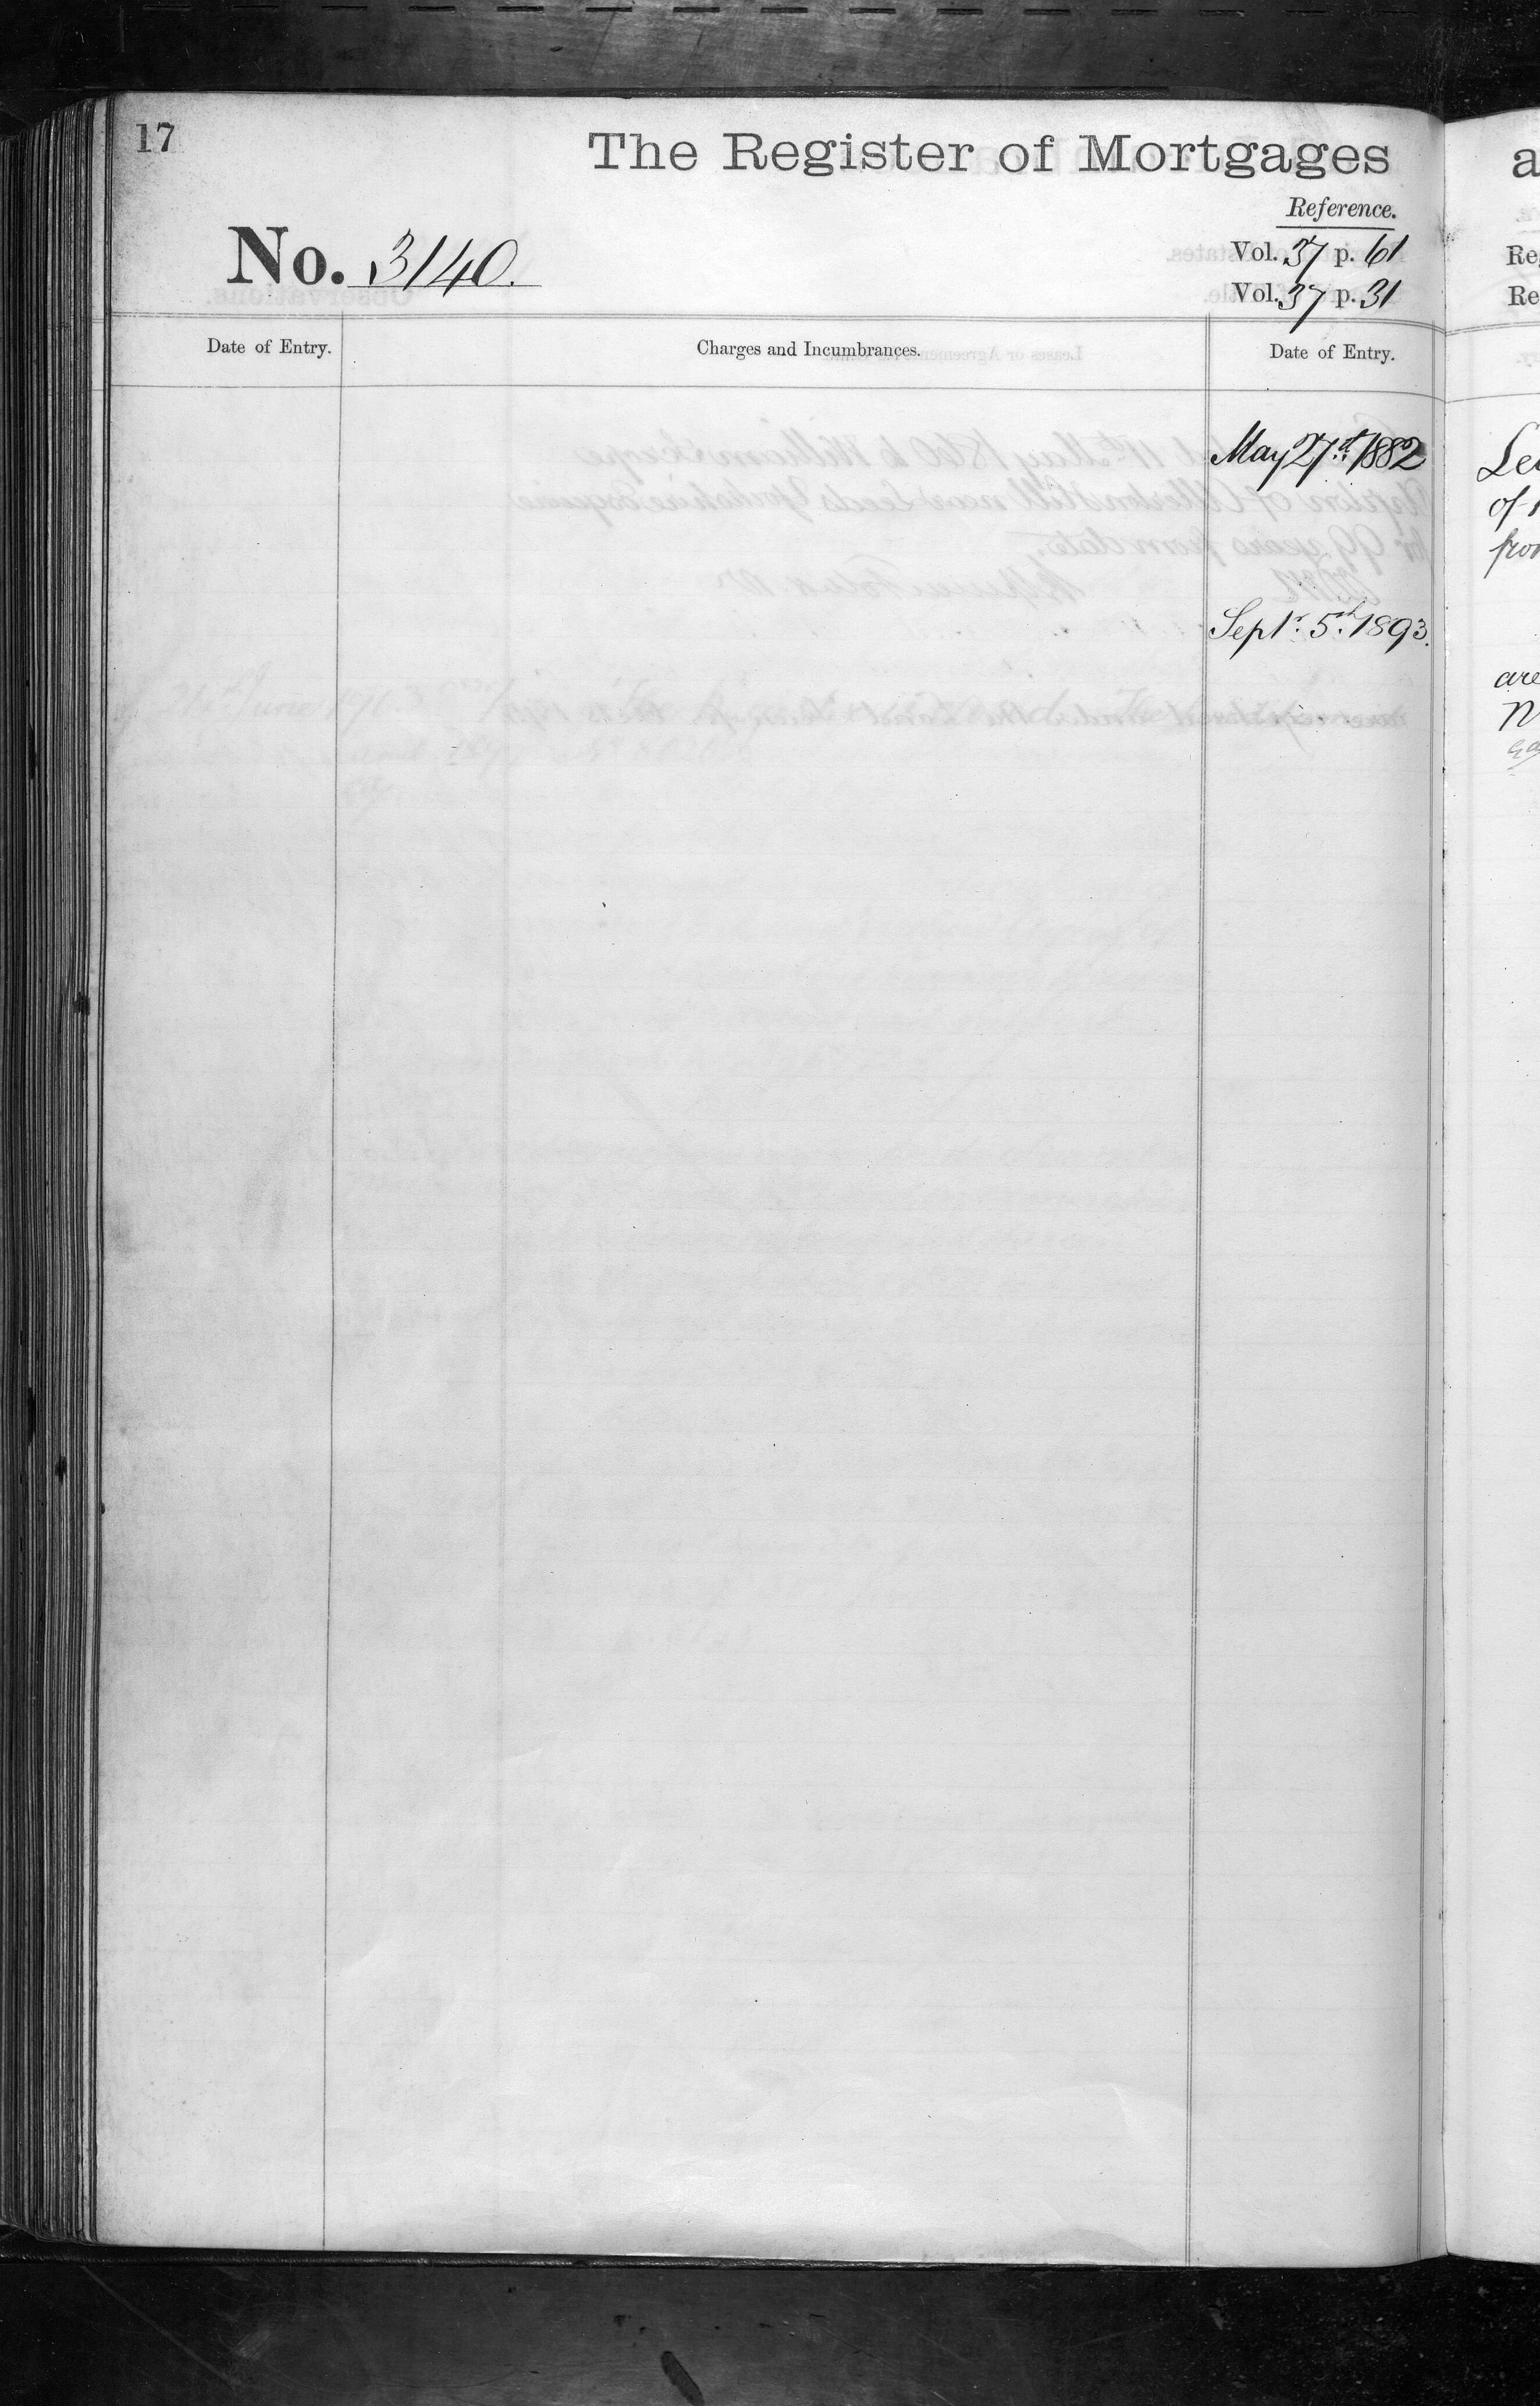 17
The Register of Mortgages
Reference.
No. 3140.
Vol. 37 p. 61
Vol. 37 p. 31
Date of Entry.
Charges and Incumbrances.
Date of Entry.
May 27th. 1882
Septr. 5th. 1893.
a
Re
Re
of
are